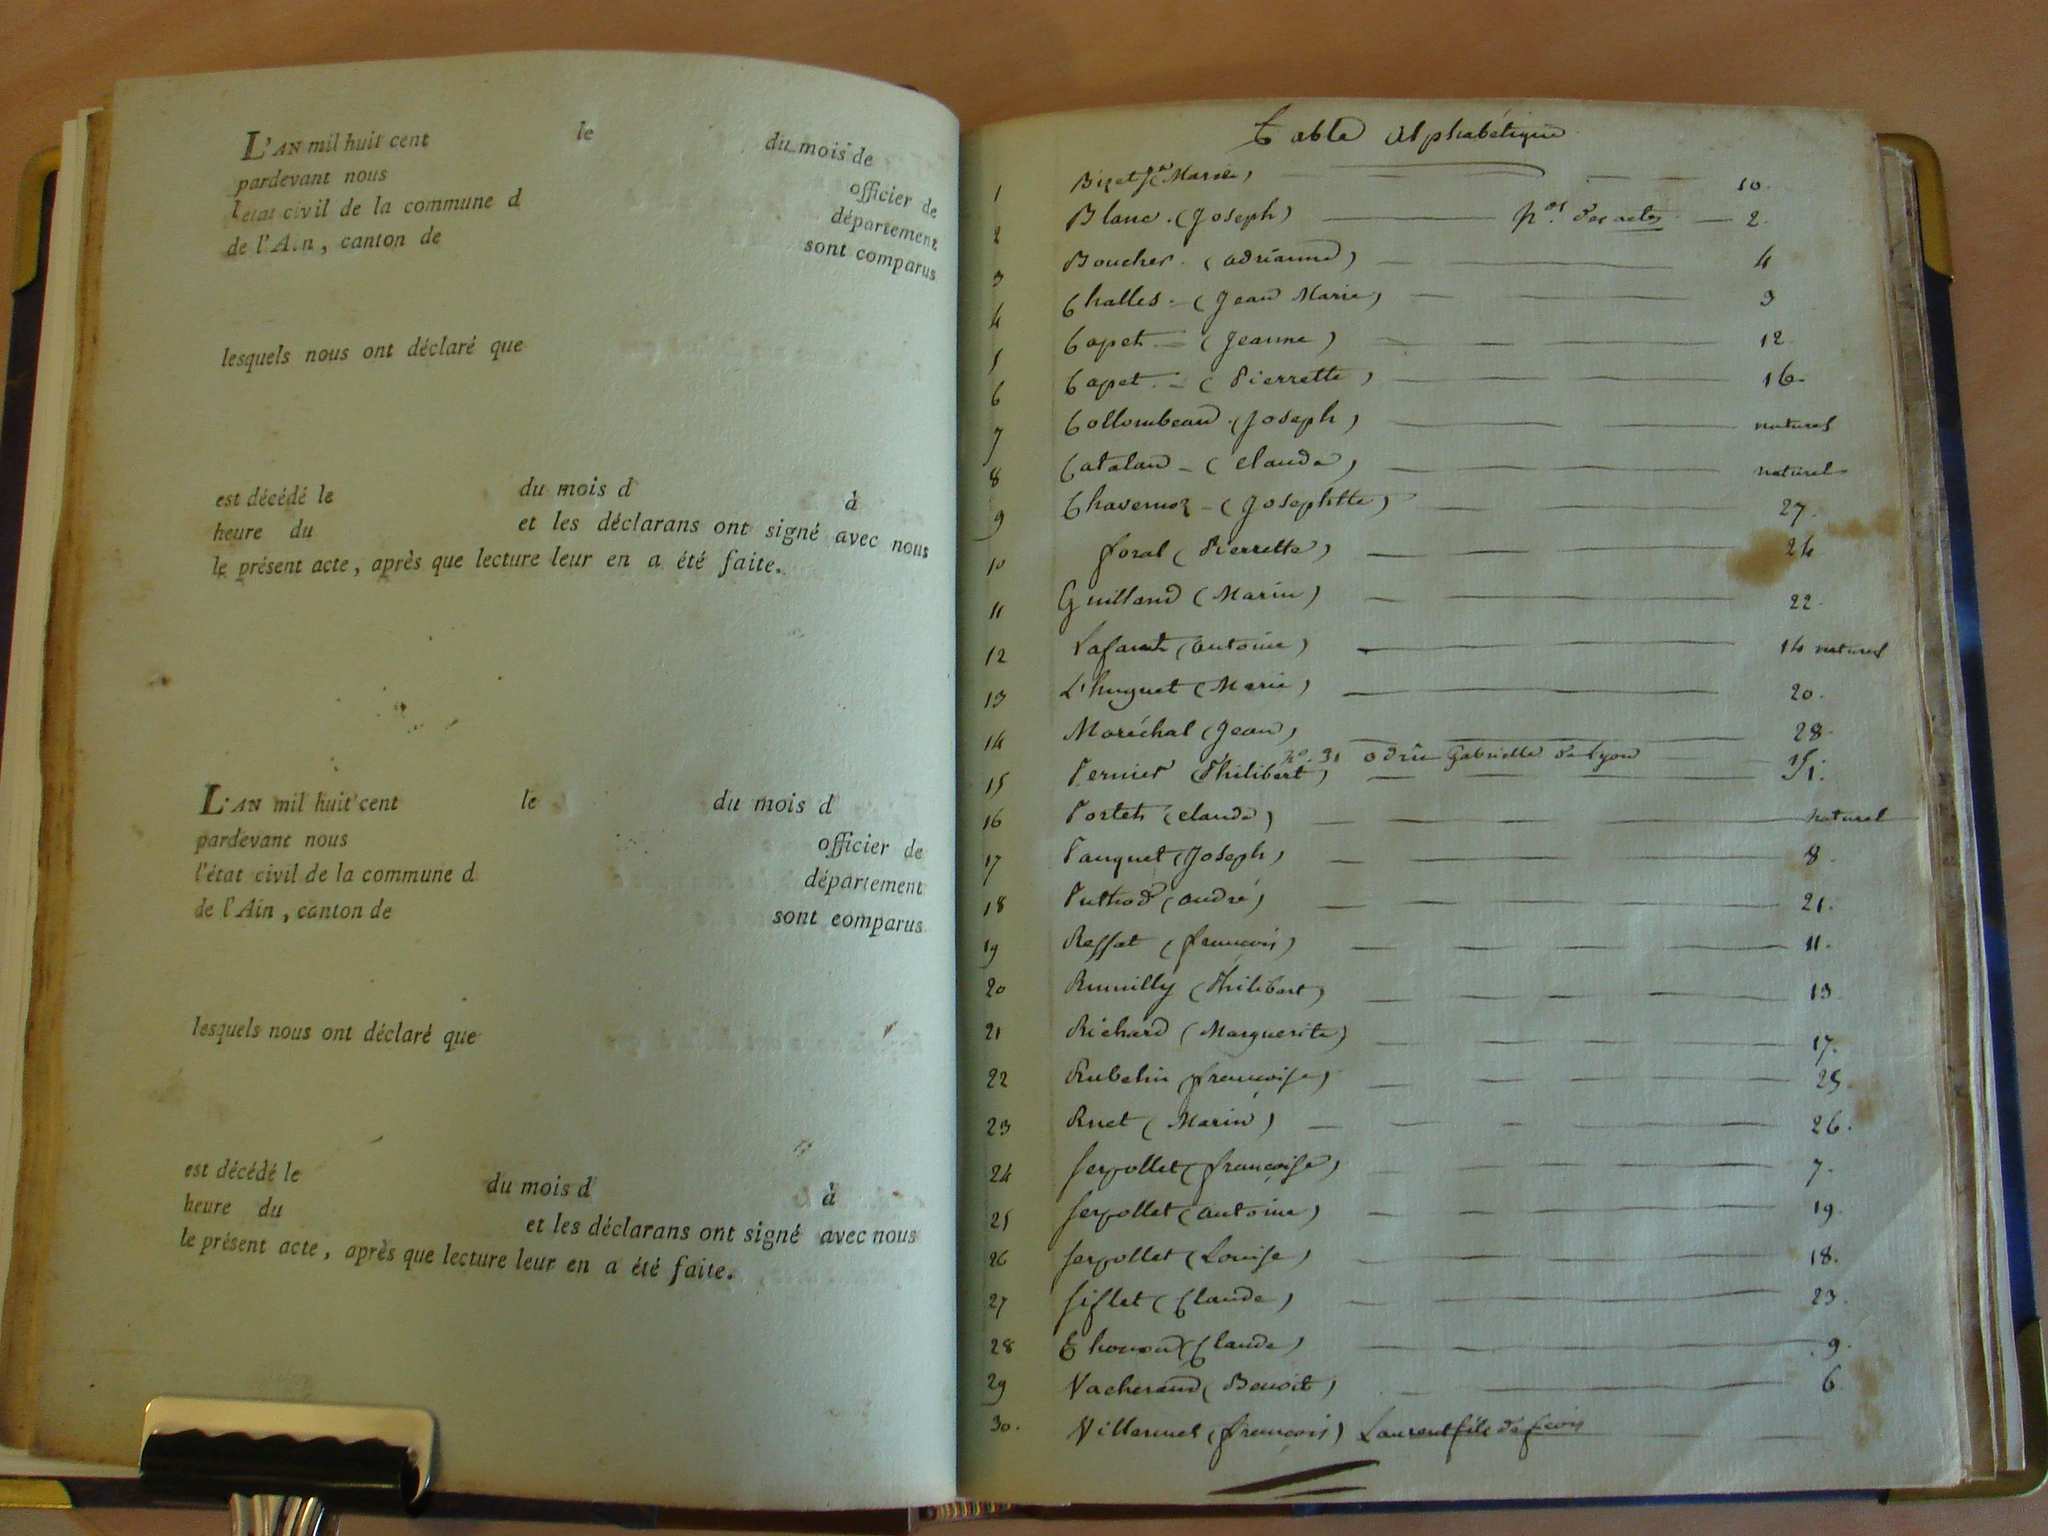 L'AN mil huit cent le du mois de
pardevant nous officier de
l'état civil de la commune d département
de l'Ain, canton de sont comparus
lesquels nous ont déclaré que
est décédé le du mois d à
heure du et les déclarans ont signé avec nous
le présent acte, après que lecture leur en a été faite.
L'AN mil huit cent le du mois d
pardevant nous officier de
l'état civil de la commune d département
de l'Ain, canton de sont comparus
lesquels nous ont déclaré que
est décédé le du mois d à
heure du et les déclarans ont signé avec nous
le présent acte, après que lecture leur en a été faite.
Table Alphabétique
1 Bizet Marie) 10.
2 Blanc. (Joseph) nos. des actes 2.
3 Boucher. (adrianne) 4
4 Challes. (Jean Marie) 3
5 Capet (Jeanne) 12
6 Capet. (Pierrette) 16.
7 Collombeau (Joseph) naturel
8 Cataland (Claude) naturel
9 Chavernoz (Josephtte) 27.
10 foral (Pierrette) 24
11 Guilland (Marin) 22.
12 (antoine) 14 naturel
13 L'huguet (Marie) 20.
14 Moréchal (Jean) 28.
no. 31 Gabrielle de Lyon
15 Pernier (Philibert)
16 Portet (Claude) naturel
17 Pauquet (Joseph) 8.
18 Puthod (andré) 21.
19 Reffat (françois) 11.
20 Rumilly (Philibert) 13
21 Richard (Marguerite) 17.
22 Rubelin (françoise) 25
23 Ruet (Marin) 26.
24 Serpollet (françoise) 7.
25 Serpollet (antoine) 19.
26 Serpollet (Louise) 18.
27 Siflet (Claude) 23.
28 (Claude) 9.
29 Vacherand (Benoit) 6
30. Villermet (françois) Laurent fils de